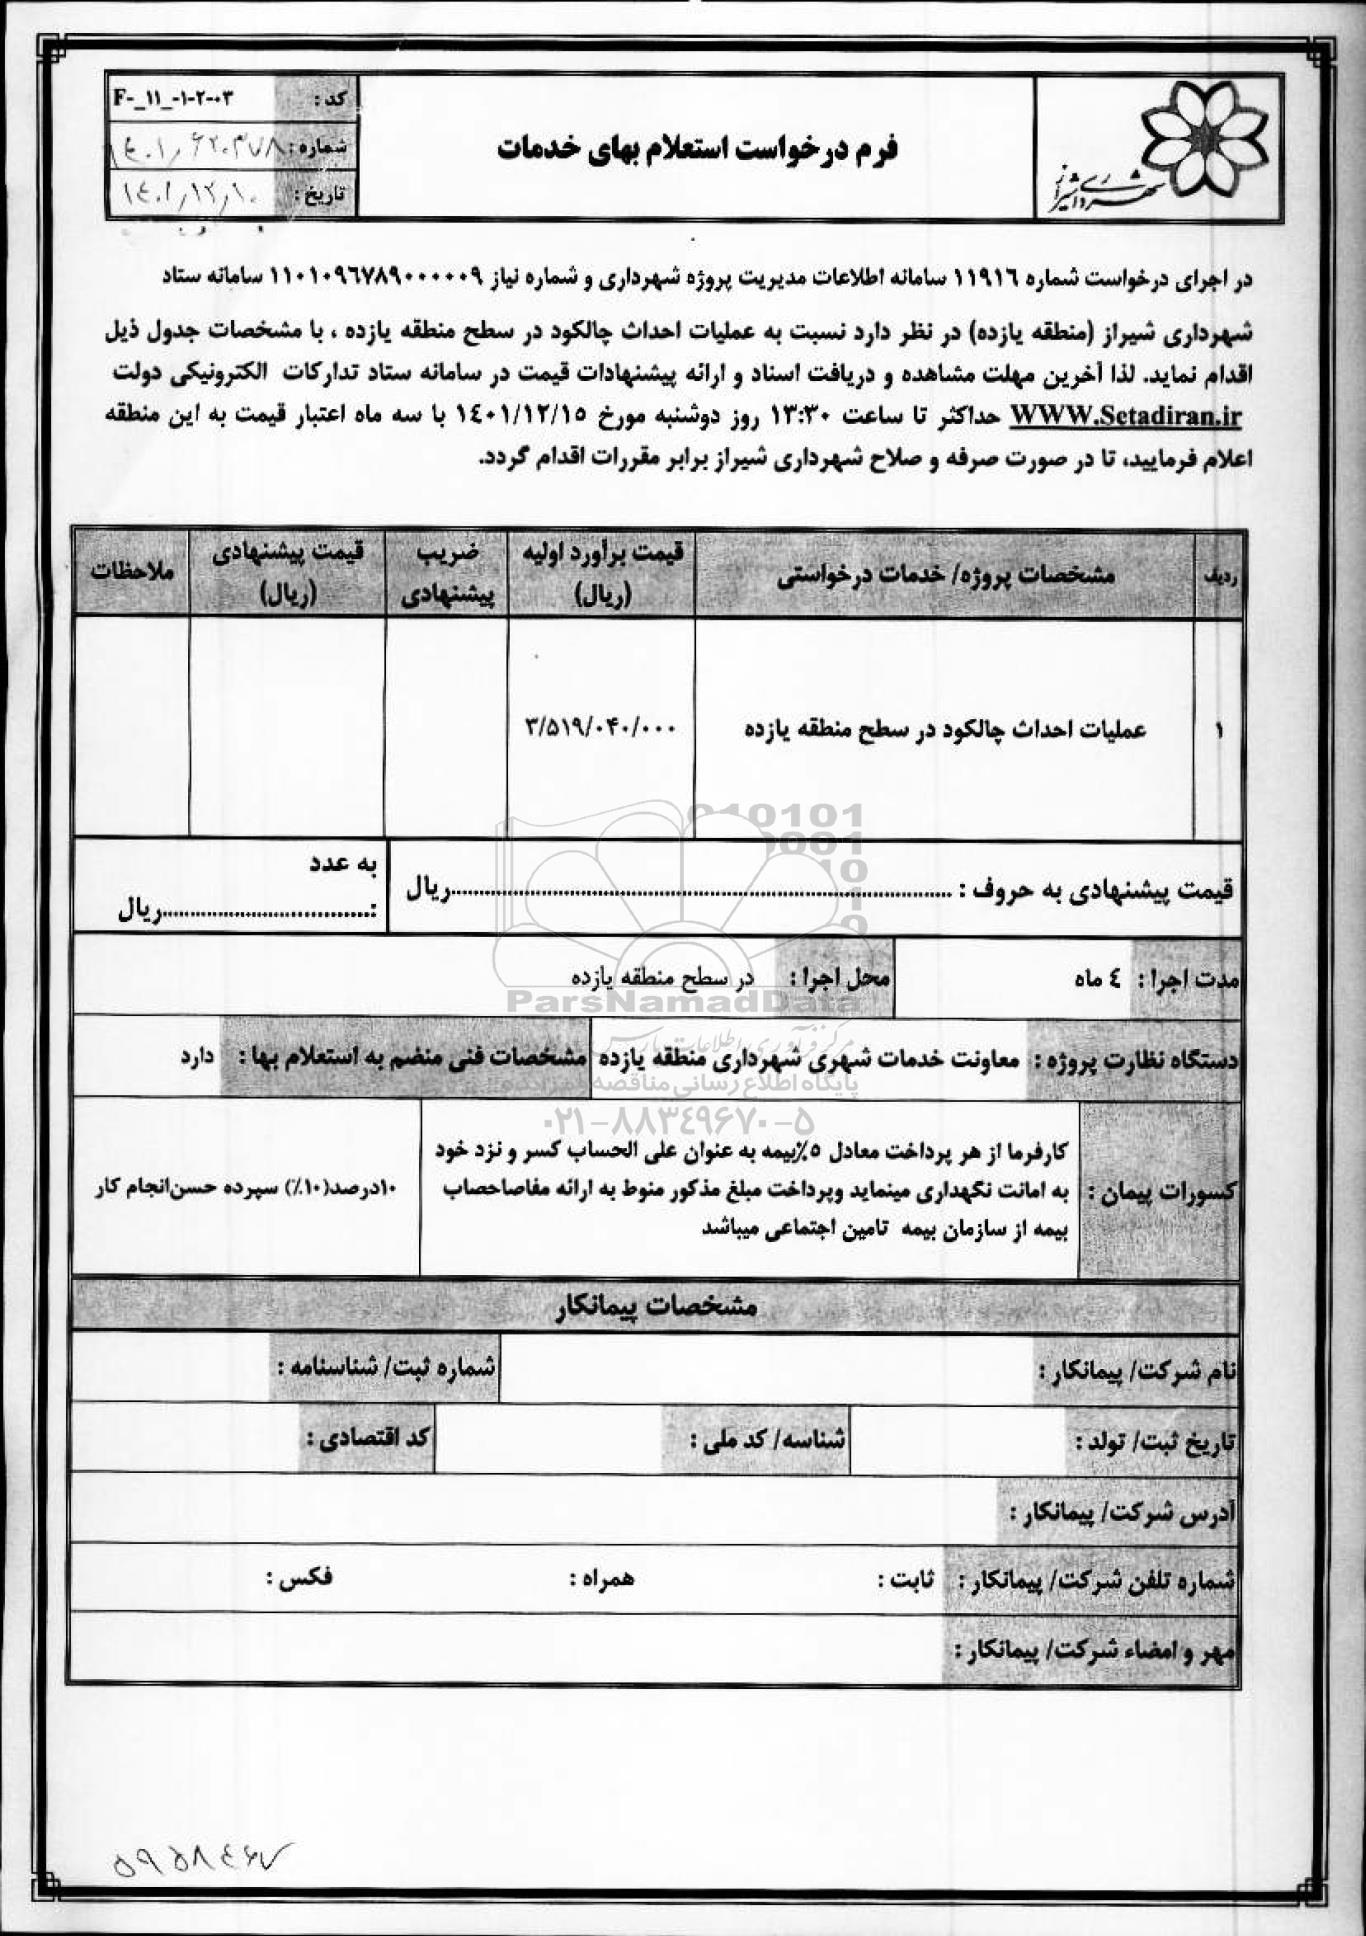 شهرداری شیراز
فرم درخواست استعلام بهای خدمات
کد : F-_۱۱_-۱-۲-۰۳
شماره : ۱۴۰۱/۶۲۰۳۷۸
تاریخ : ۱۴۰۱/۱۲/۱۰
در اجرای درخواست شماره ۱۱۹۱٦ سامانه اطلاعات مدیریت پروژه شهرداری و شماره نیاز ۱۱۰۱۰۹٦۷۸۹۰۰۰۰۰۹ سامانه ستاد
شهرداری شیراز (منطقه یازده) در نظر دارد نسبت به عملیات احداث چالکود در سطح منطقه یازده ، با مشخصات جدول ذیل
اقدام نماید. لذا آخرین مهلت مشاهده و دریافت اسناد و ارائه پیشنهادات قیمت در سامانه ستاد تدارکات الکترونیکی دولت
WWW.Setadiran.ir حداکثر تا ساعت ۱۳:۳۰ روز دوشنبه مورخ ۱٤۰۱/۱۲/۱۵ با سه ماه اعتبار قیمت به این منطقه
اعلام فرمایید، تا در صورت صرفه و صلاح شهرداری شیراز برابر مقررات اقدام گردد.
ردیف مشخصات پروژه/ خدمات درخواستی قیمت برآورد اولیه (ریال) ضریب پیشنهادی قیمت پیشنهادی (ریال) ملاحظات
۱ عملیات احداث چالکود در سطح منطقه یازده ۳/۵۱۹/۰۴۰/۰۰۰
قیمت پیشنهادی به حروف : ........................................ریال به عدد
:....................................ریال
مدت اجرا : ٤ ماه محل اجرا : در سطح منطقه یازده
دستگاه نظارت پروژه : معاونت خدمات شهری شهرداری منطقه یازده مشخصات فنی منضم به استعلام بها : دارد
کسورات پیمان :
کارفرما از هر پرداخت معادل ۵٪بیمه به عنوان علی الحساب کسر و نزد خود
به امانت نگهداری مینماید وپرداخت مبلغ مذکور منوط به ارائه مفاصاحصاب
بیمه از سازمان بیمه تامین اجتماعی میباشد
۱۰درصد(۱۰٪) سپرده حسن‌انجام کار
مشخصات پیمانکار
نام شرکت/ پیمانکار : شماره ثبت/ شناسنامه :
تاریخ ثبت/ تولد : شناسه/ کد ملی : کد اقتصادی :
آدرس شرکت/ پیمانکار :
شماره تلفن شرکت/ پیمانکار : ثابت : همراه : فکس :
مهر و امضاء شرکت/ پیمانکار :
ParsNamadData
پایگاه اطلاع رسانی مناقصه و مزایده
۰۲۱-۸۸۳٤۹۶۷۰-۵
۵۹۵۸۴۶۷